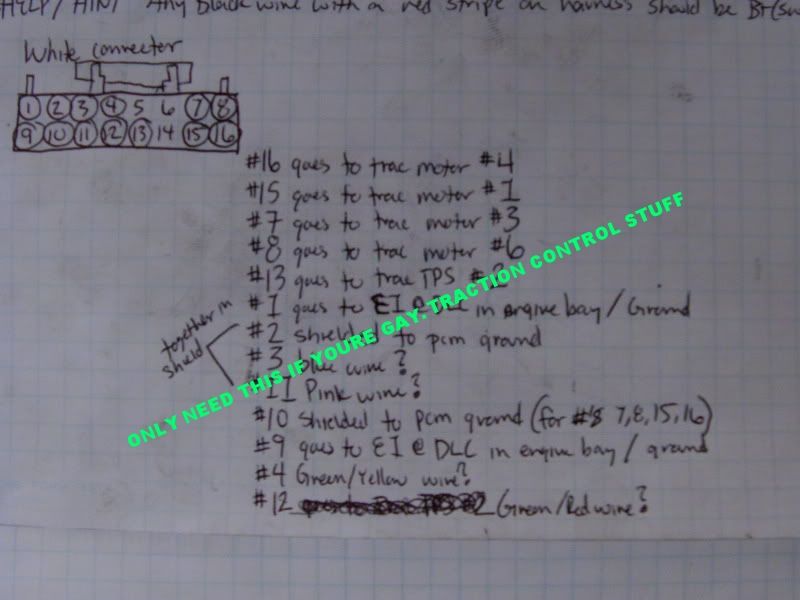 HELP/HINT Any Black wire with a red stripe on harness should be B+(sw
White connector
1 2 3 4 5 6 7 8
9 10 11 12 13 14 15 16
#16 goes to trac motor #4
#15 goes to trac motor #1
#7 goes to trac motor #3
#8 goes to trac motor #6
#13 goes to trac TPS #2
#1 goes to EI @ DLC in engine bay / Ground
together in shield
#2 shielded to pcm ground
#3 blue wire?
#11 Pink wire?
#10 shielded to pcm ground (for #'s 7,8,15,16)
#9 goes to EI @ DLC in engine bay / ground
#4 Green/Yellow wire?
#12 Green/Red wire?
ONLY NEED THIS IF YOURE GAY.TRACTION CONTROL STUFF